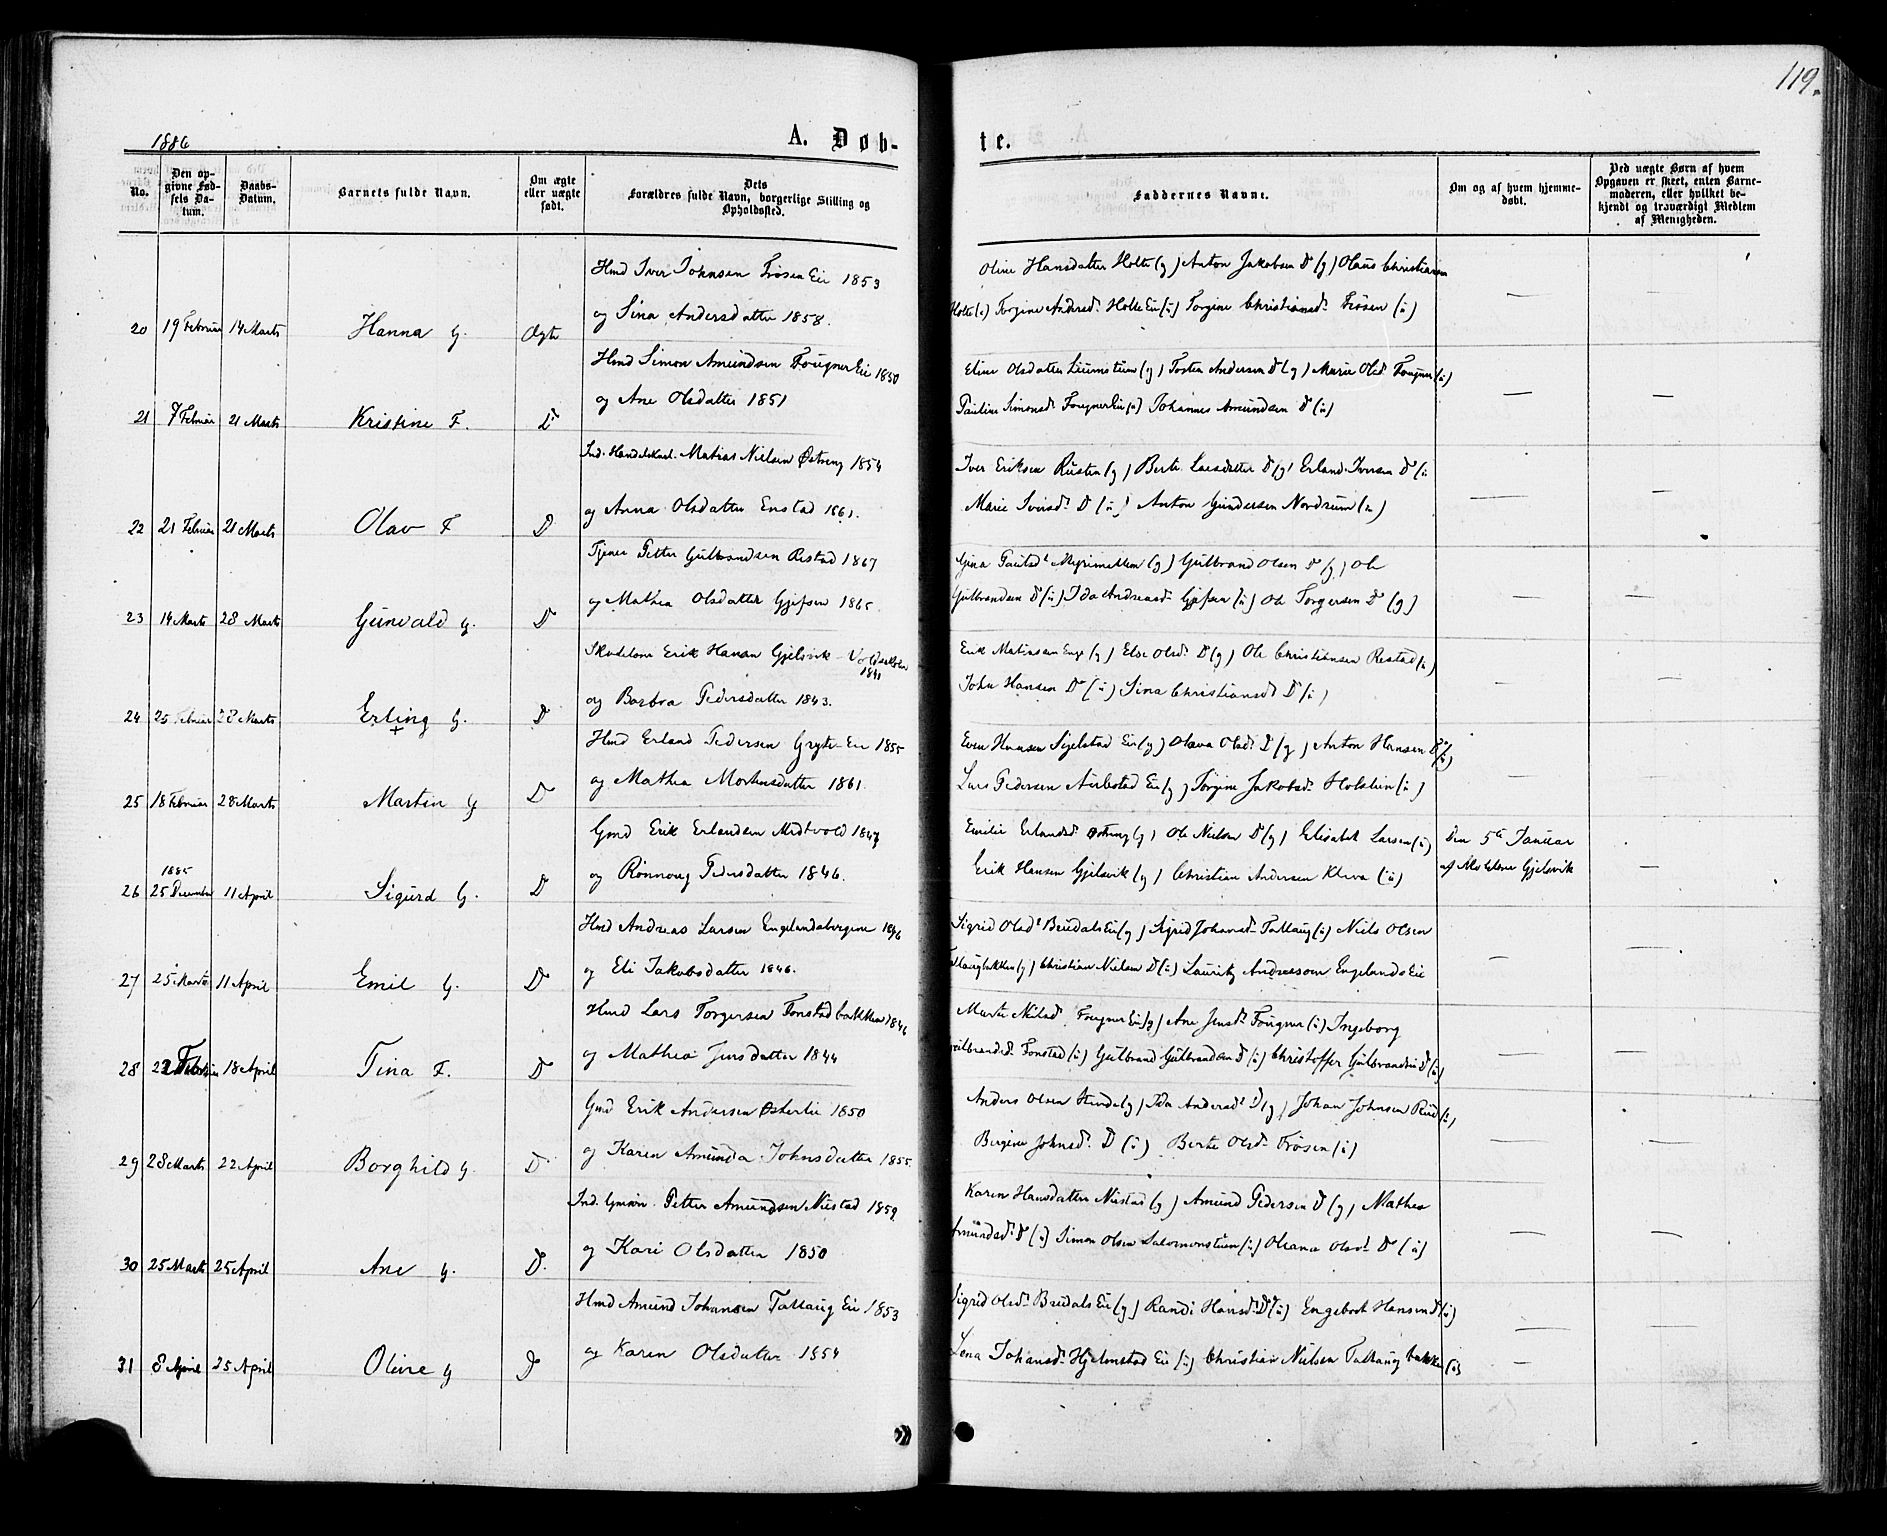 119.
1886
A. Døb-
te.
No.
Den op-
givne Fød-
sels Da-
tum.
Daabs-
Datum.
Barnets fulde Navn.
Om ægte
eller uægte
født.
Dets
Forældres fulde Navn, borgerlige Stilling og
Opholdssted.
Faddernes Navne.
Om og af hvem hjemme-
døbt.
Ved uægte Børn af hvem
Opgaven er skeet, enten Barne-
moderen, eller hvilket be-
kjendt og troværdigt Medlem
af Menigheden.
Hmd Iver Johnsen Frøsen Eie 1853
Oline Hansdatter Holte (g) Anton Jakobsen D (g) Olaus Christiansen
og Sina Andersdatter 1858.
Holte (u) Torgine Andersd. Holte Eie (u) Torgine Christiansd. Frøsen (u)
20 19 Februar 14 Marts Hanna G. Ægte
Hmd Simon Amundsen Fougner Eie 1850
Eline Olsdatter (g) Tosten Andersen D (g) Marie Olsd Fougner (u)
og Ane Olsdatter 1851
Pauline Simonsd. Fougner Eie (u) Johannes Amundsen D (u)
21 7 Februar 21 Marts Kristine F. D
Ind. Handelskarl. Matias Nielsen Østreng 1854
Iver Eriksen Rusten (g) Berte Larsdatter D (g) Erland Iversen D (u
og Anna Olsdatter Enstad 1861.
Marie Iversd. D (u) Anton Gundersen Nordrum (u)
22 21 Februar 21 Marts Olav F D
Tjener Petter Gulbrandsen Restad 1867
Gina (g) Gulbrand Olsen D (g) Ole
og Mathea Olsdatter Gjefsen 1865
Gulbrandsen D (u) Ida Andreasd. Gjefsen (u) Ole Torgersen D (g)
23 14 Marts 28 Marts Gunvald G. D
Skolelærer Erik Hansen Gjelsvik
1841
Erik Matiassen Enge (g) Else Olsd. D (g) Ole Christiansen Restad (u)
og Barbra Pedersdatter 1843.
John Hansen D (u) Sina Christiansd D (u)
24 25 Februar 28 Marts Erling G. D
Hmd Erland Pedersen Gryte Eie 1855
Even Hansen Sygelstad Eie (g) Olava Olsd. D (g) Anton Hansen D (u)
og Mathea Mortensdatter 1861.
Lars Pedersen Eie (g) Torgine Jakobsd. Holstein (u)
25 18 Februar 28 Marts Martin G D
Gmd Erik Erlandsen Midtvold 1847
Emilie Erlandsd. Østreng (g) Ole Nielsen D (g) Elisabet Larsen (u)
Den 5te Januar
1885
og Rønnoug Pedersdatter 1846.
Erik Hansen Gjelsvik (g) Christian Andersen Kleva (u)
af Skolelærer Gjelsvik
26 25 December 11 April Sigurd G. D
Hmd Andreas Larsen Engelandsbergene 1846
Sigrid Olsd. Brudals Eie (g) Sigrid Johansd. Fallaug (u) Niels Olsen
og Eli Jakobsdatter 1846.
Fallaugbakken (g) Christian Nielsen D (u) Lauritz Andreassen Engelands Eie
27 25 Marts 11 April Emil G. D
Hmd Lars Torgersen Fonstadbakken 1846
Marte Nilsd. Fougner Eie (g) Ane Jensd. Fougner (u) Ingeborg
og Mathea Jensdatter 1844
Gulbrandsd. Fonstad (u) Gulbrand Gulbrandsen D (u) Christoffer Gulbrandsen D (u)
28 22 Februar 18 April Tina F. D
Gmd Erik Andersen Østerlie 1850
Anders Olsen Hunde (g) Ida Andersd. D (g) Johan Johnsen Rud (u)
og Karen Amunda Johnsdatter 1855.
Bergine Johnsd. D (u) Berte Olsd. Frøsen (u)
29 28 Marts 22 April Borghild G. D
Ind. Gmsøn. Petter Amundsen Nustad 1859
Karen Hansdatter Nustad (g) Amund Pedersen D (g) Mathea
og Kari Olsdatter 1850
Amundsd. D (u) Simon Olsen Salomonstuen (u) Oleanna Olsd. D (u)
30 25 Marts 25 April Ane G. D.
Hmd Amund Johansen Fallaug Eie 1853
Sigrid Olsd. Brudals Eie (g) Randi Hansd. D (u) Engebret Hansen D (u)
og Karen Olsdatter 1854
Lena Johansd. Hjelmstad Eie (u) Christian Nielsen Fallaugbakken (u)
31 8 April 25 April Oline G D